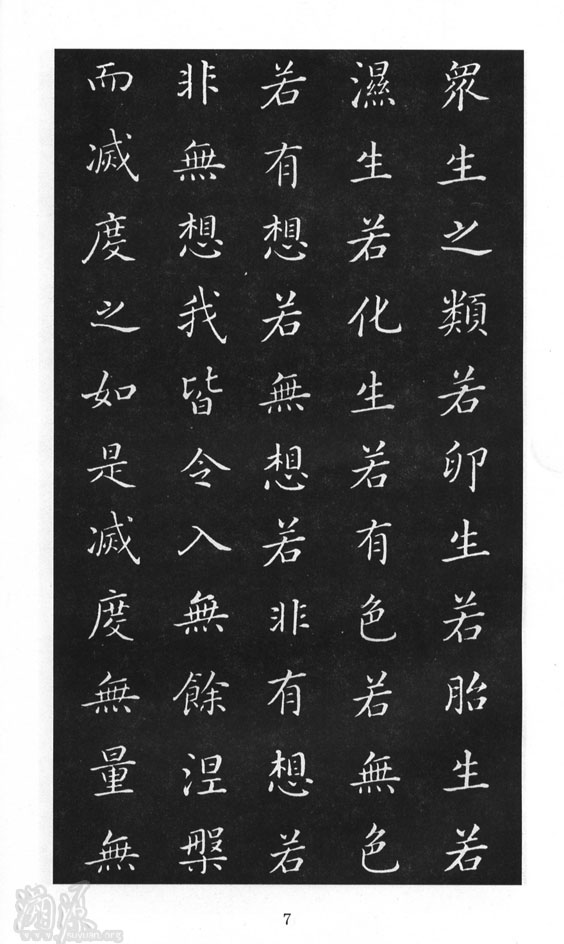 衆生之類若卵生若胎生若
濕生若化生若有色若無色
若有想若無想若非有想若
非無想我皆令入無餘涅槃
而滅度之如是滅度無量無
7